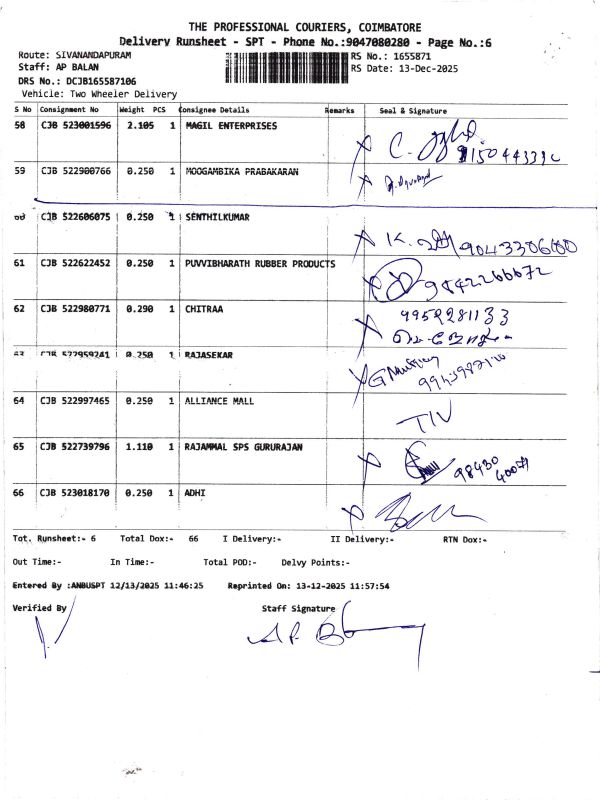 THE PROFESSIONAL COURIERS, COIMBATORE
Delivery Runsheet - SPT - Phone No.:9047080280 - Page No.:6
Route: SIVANANDAPURAM
RS No.: 1655871
Staff: AP BALAN
RS Date: 13-Dec-2025
DRS No.: DCJB165587106
Vehicle: Two Wheeler Delivery
S No Consignment No Weight PCS Consignee Details Remarks Seal & Signature
58 CJB 523001596 2.105 1 MAGIL ENTERPRISES
59 CJB 522900766 0.250 1 MOOGAMBIKA PRABAKARAN
CJB 522606075 0.250 1 SENTHILKUMAR
K.
61 CJB 522622452 0.250 1 PUVVIBHARATH RUBBER PRODUCTS
9842266672
62 CJB 522980771 0.290 1 CHITRAA
CJB 522959241 0.250 1 RAJASEKAR
64 CJB 522997465 0.250 1 ALLIANCE MALL
65 CJB 522739796 1.110 1 RAJAMMAL SPS GURURAJAN
98430
40071
66 CJB 523018170 0.250 1 ADHI
Tot. Runsheet:- 6 Total Dox:- 66 I Delivery:- II Delivery:- RTN Dox:-
Out Time:- In Time:- Total POD:- Delvy Points:-
Entered By :ANBUSPT 12/13/2025 11:46:25 Reprinted On: 13-12-2025 11:57:54
Verified By Staff Signature